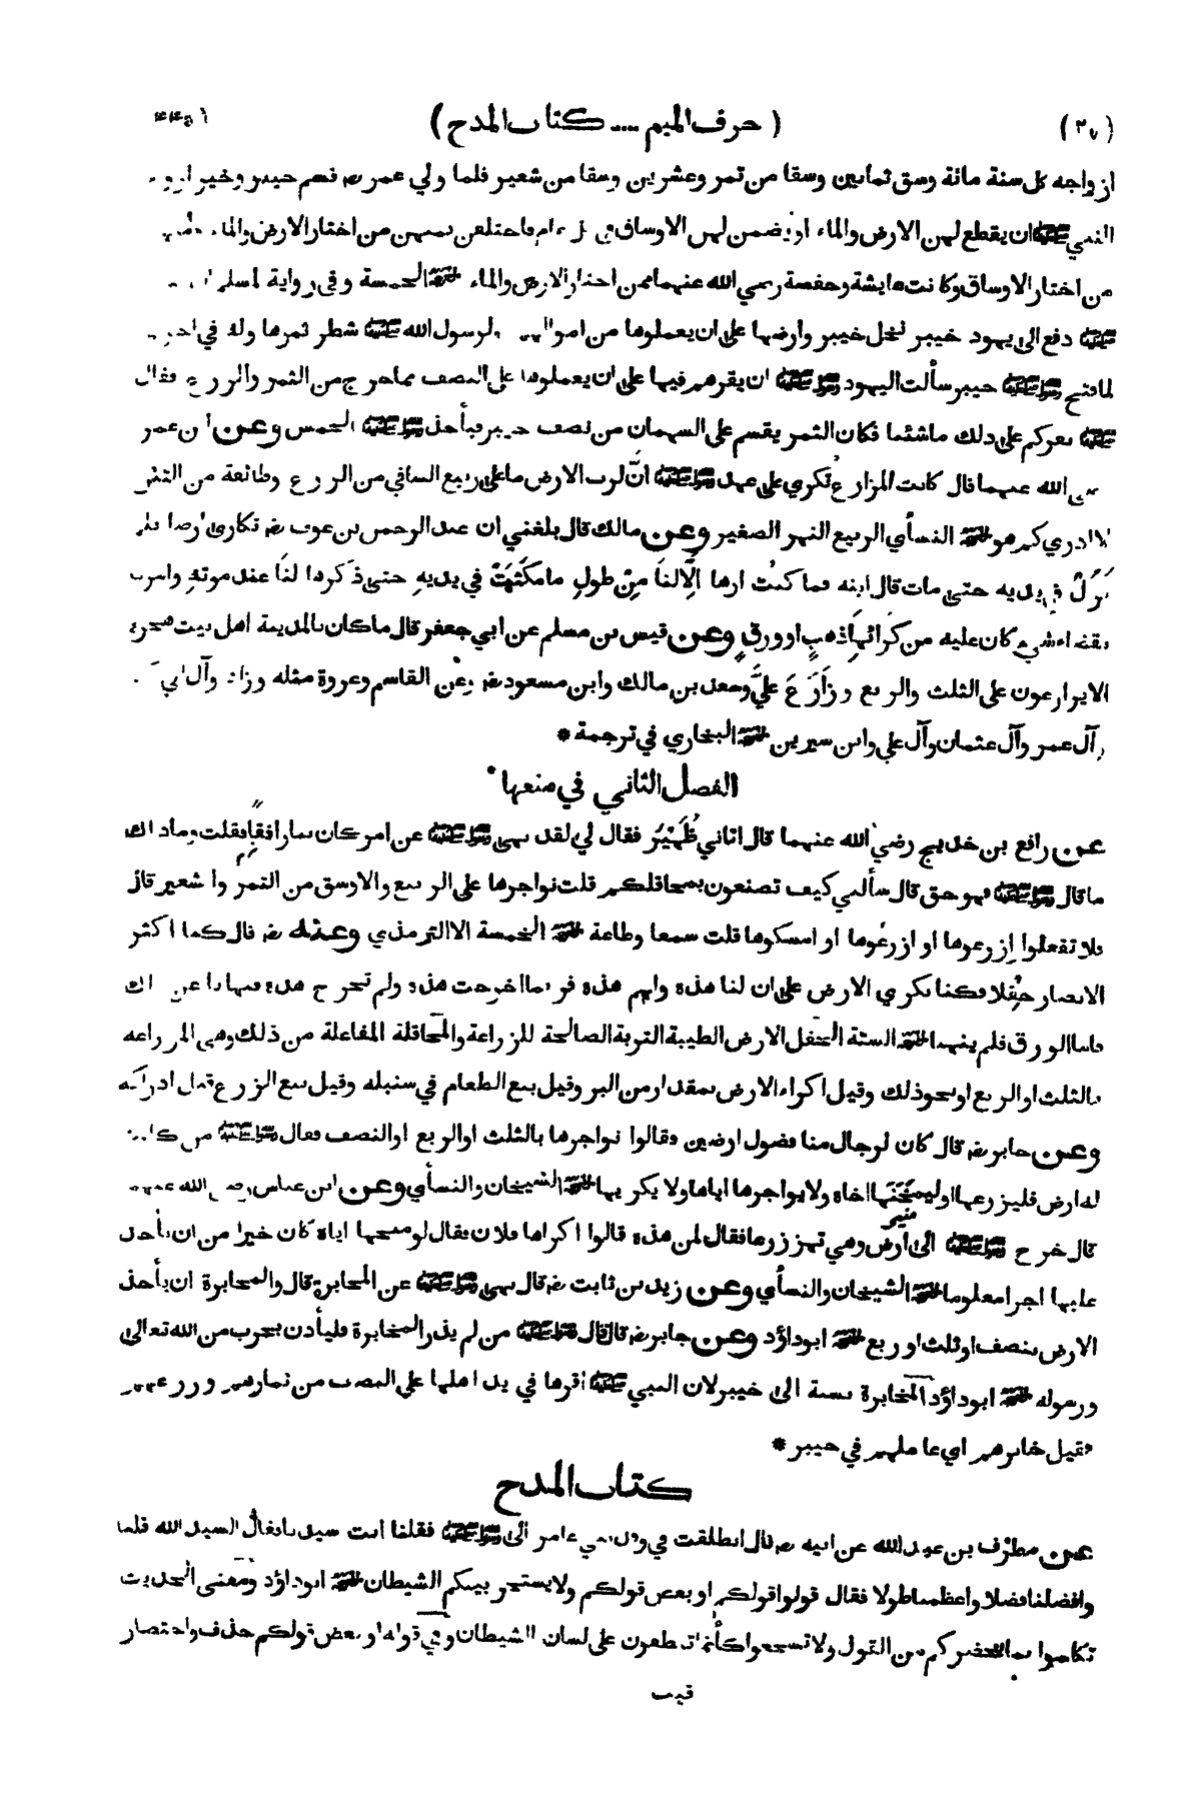 (٣٧) (حرف الميم .... كتاب المدح)
ازواجه كل سنة مائة وسق ثمانين وسقا من تمر وعشرين وسقا من شعير فلما ولي عمر رضه قسم خيبر وخير ازواج
النبي ﷺ ان يقطع لهن الارض والماء او يضمن لهن الاوساق في كل عام فاختلفن فمنهن من اختار الارض والماء ومنهن
من اختار الاوساق وكانت عايشة وحفصة رضي الله عنهما ممن اختار الارض والماء الخمسة وفي رواية لمسلم
ﷺ دفع الى يهود خيبر نخل خيبر وارضها على ان يعملوها من اموالهم ولرسول الله ﷺ شطر ثمرها وله في اخرى
لما فتح خيبر سألت اليهود ان يقرهم فيها على ان يعملوها على النصف مما خرج من الثمر والزرع فقال
ﷺ نقركم على ذلك ماشئنا فكان الثمر يقسم على السهمان من نصف خيبر فيأخذ الخمس وعن ابن عمر
رضي الله عنهما قال كانت المزارع تكرى على عهد ان لرب الارض ما على ربيع الساقي من الزرع وطائفة من التبن
لا ادري كم هو النسأي الربيع النهر الصغير وعن مالك قال بلغني ان عبد الرحمن بن عوف رضه تكارى ارضا فلم
تزل في يديه حتى مات قال ابنه فما كنت اراها الّا لنا مِنْ طول مامكثت في يديه حتى ذكرها لنا عند موته وامرنا
بقضاء شيء كان عليه من كرائها ذهب او ورق وعن قيس بن مسلم عن ابي جعفر قال ماكان بالمدينة اهل بيت هجرة
الايزارعون على الثلث والربع وزارَعَ عليّ وسعد بن مالك وابن مسعود رضه وعن القاسم وعروة مثله وزاد وآل ابي بكر
وآل عمر وآل عثمان وآل علي وابن سيرين البخاري في ترجمة *
الفصل الثاني في منعها
عن رافع بن خديج رضي الله عنهما قال اتاني ظهير فقال لي لقد نهى عن امر كان بنا رافقا فقلت وماذاك
ماقال فهو حق قال سألني كيف تصنعون بمحاقلكم قلت نواجرها على الربيع والاوسق من التمر والشعير قال
فلا تفعلوا ازرعوها او ازرعوها او امسكوها قلت سمعا وطاعة الخمسة الا الترمذي وعنه رضه قال كنا اكثر
الانصار حقلا فكنا نكري الارض على ان لنا هذه ولهم هذه فربما اخرجت هذه ولم تخرج هذه فنهانا عن ذلك
فاما الورق فلم ينهنا الستة الحقل الارض الطيبة التربة الصالحة للزراعة والمحاقلة المفاعلة من ذلك وهي المزارعة
بالثلث او الربع او نحو ذلك وقيل اكراء الارض بمقدار من البر وقيل بيع الطعام في سنبله وقيل بيع الزرع قبل ادراكه
وعن جابر رضه قال كان لرجال منا فضول ارضين فقالوا نواجرها بالثلث او الربع او النصف فقال من كانت
له ارض فليزرعها او ليمنحها اخاه ولا يواجرها اياها ولا يكريها الشيخان والنسأي وعن ابن عباس رضي الله عنهما
قال خرج الى ارض وهي تهتز زرعا فقال لمن هذه قالوا اكراها فلان فقال لو منحها اياه كان خيرا من ان يأخذ
عليها اجرا معلوما الشيخان والنسأي وعن زيد بن ثابت رضه قال نهى عن المخابرة قال والمخابرة ان يأخذ
الارض بنصف او ثلث او ربع ابوداؤد وعن جابر رضه قال قال من لم يذر المخابرة فليأذن بحرب من الله تعالى
ورسوله ابوداؤد المخابرة نسبة الى خيبر لان النبي ﷺ اقرها في يد اهلها على النصف من ثمارهم وزرعهم
فقيل خابرهم اي عاملهم في خيبر *
كتاب المدح
عن مطرّف بن عبد الله عن ابيه رضه قال انطلقت في وفد بني عامر الى فقلنا انت سيدنا فقال السيد الله قلنا
وافضلنا فضلا واعظمنا طولا فقال قولوا قولكم او بعض قولكم ولا يستجرينكم الشيطان ابوداؤد ومعنى الحديث
تكلموا بما يحضركم من القول ولا تسجعوا كأنما تنطقون على لسان الشيطان وفي قوله او بعض قولكم حذف واختصار